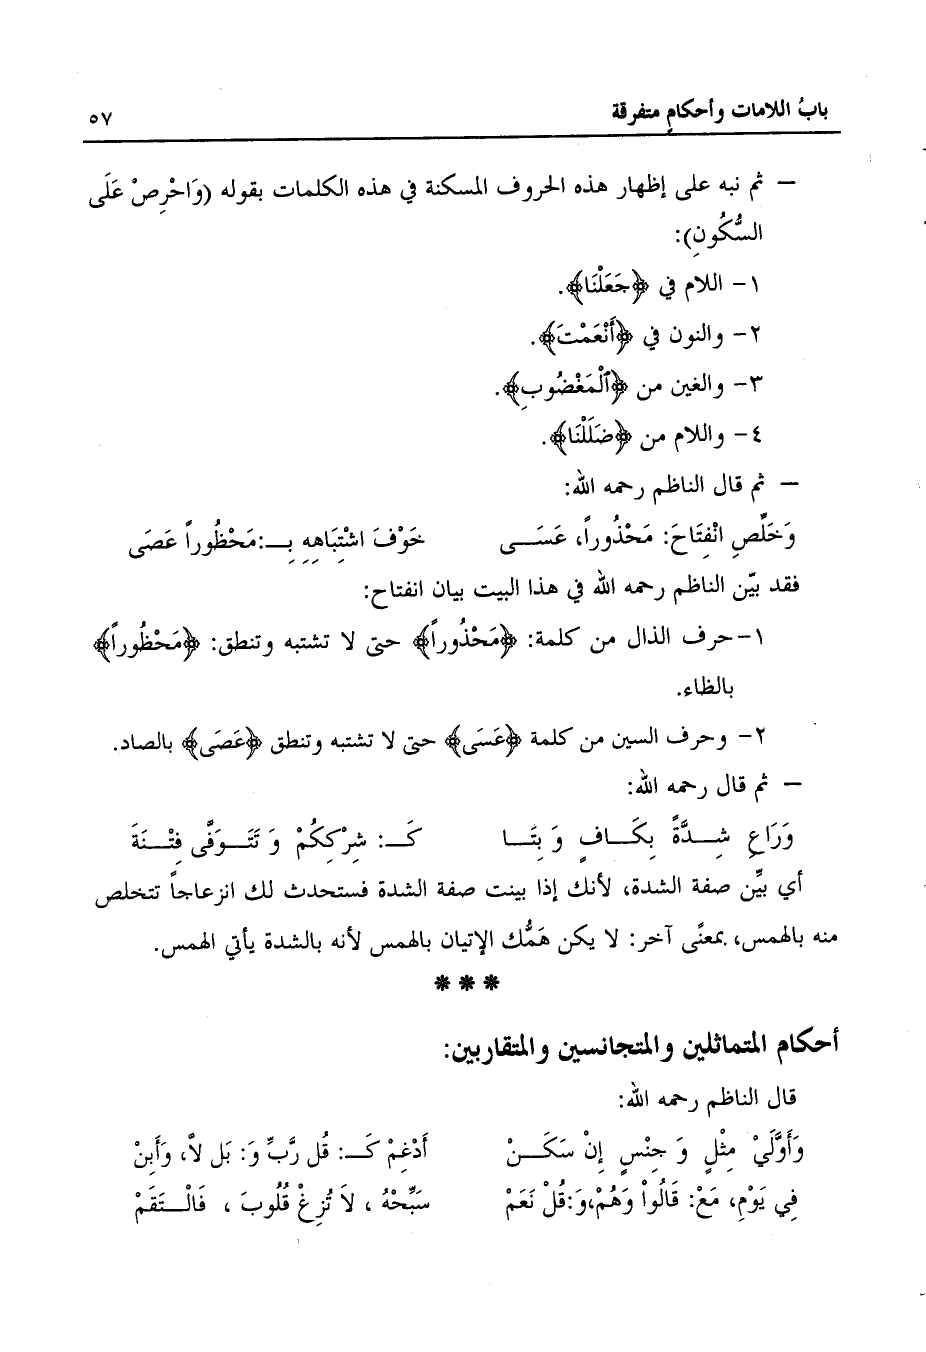 بابُ اللامات وأحكامٍ متفرقة ٥٧
– ثم نبه على إظهار هذه الحروف المسكنة في هذه الكلمات بقوله (وَاحْرِصْ عَلَى
السُّكُونِ):
١- اللام في ﴿جَعَلْنَا﴾.
٢- والنون في ﴿أَنْعَمْتَ﴾.
٣- والغين من ﴿ٱلْمَغْضُوبِ﴾.
٤- واللام من ﴿ضَلَلْنَا﴾.
– ثم قال الناظم رحمه الله:
وَخَلِّصِ انْفِتَاحَ: مَحْذُوراً، عَسَــى خَوْفَ اشْتِبَاهِهِ بِــ:مَحْظُوراً عَصَى
فقد بيّن الناظم رحمه الله في هذا البيت بيان انفتاح:
١-حرف الذال من كلمة: ﴿مَحْذُوراً﴾ حتى لا تشتبه وتنطق: ﴿مَحْظُوراً﴾
بالظاء.
٢- وحرف السين من كلمة ﴿عَسَى﴾ حتى لا تشتبه وتنطق ﴿عَصَى﴾ بالصاد.
– ثم قال رحمه الله:
وَرَاعِ شِــدَّةً بِكَــافٍ وَ بِتَــا كَــ: شِرْكِكُمْ وَ تَتَــوَفَّى فِتْــنَةَ
أي بيِّن صفة الشدة، لأنك إذا بينت صفة الشدة فستحدث لك انزعاجاً تتخلص
منه بالهمس، بمعنًى آخر: لا يكن هَمُّك الإتيان بالهمس لأنه بالشدة يأتي الهمس.
* * *
أحكام المتماثلين والمتجانسين والمتقاربين:
قال الناظم رحمه الله:
وَأَوَّلَيْ مِثْلٍ وَ جِنْسٍ إِنْ سَكَــنْ أَدْغِمْ كَــ: قُل رَّبِّ وَ: بَل لاَّ، وَأَبِنْ
فِي يَوْمِ، مَعْ: قَالُواْ وَهُمْ،وَ:قُلْ نَعَمْ سَبِّحْهُ ، لاَ تُزِغْ قُلُوبَ ، فَالْــتَقَمْ